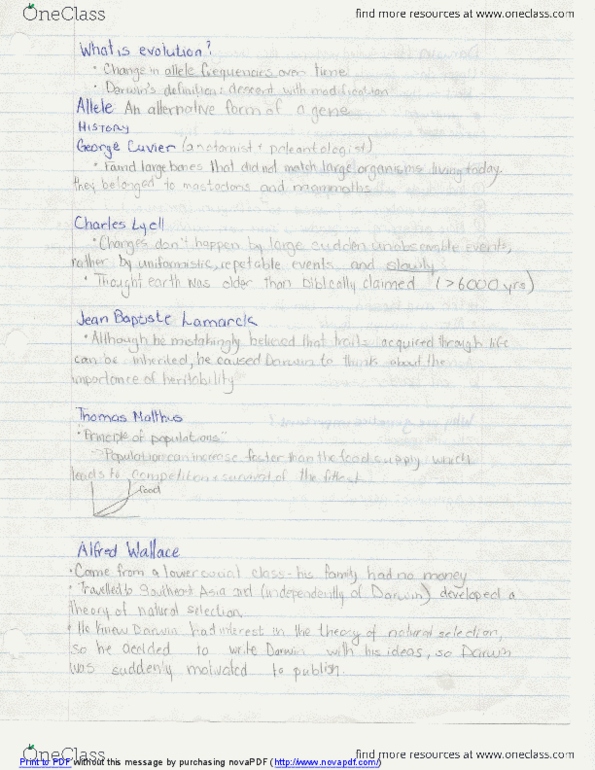 OneClass
find more resources at www.oneclass.com
What is evolution?
• Change in allele frequencies over time
• Darwin's definition: descent with modification
Allele An alternative form of a gene
HISTORY
George Cuvier (anatomist + paleantologist)
• Found large bones that did not match large organisms living today.
they belonged to mastodons and mammoths
Charles Lyell
• Changes don't happen by large sudden unobservable events,
rather by uniformistic, repetable events and slowly
• Thought earth was older than biblically claimed (>6000 yrs)
Jean Baptiste Lamarck
• Although he mistakingly believed that traits acquired through life
can be inherited, he caused Darwin to think about the
importance of heritability
Thomas Malthus
• "Principle of populations"
→ Population can increase faster than the food supply which
leads to competition + survival of the fittest
food
Alfred Wallace
• Came from a lower class - his family had no money
• Travelled to Southeast Asia and (independently of Darwin) developed a
theory of natural selection.
• He knew Darwin had interest in the theory of natural selection,
so he decided to write Darwin with his ideas, so Darwin
was suddenly motivated to publish.
OneClass
find more resources at www.oneclass.com
Print to PDF without this message by purchasing novaPDF (http://www.novapdf.com/)